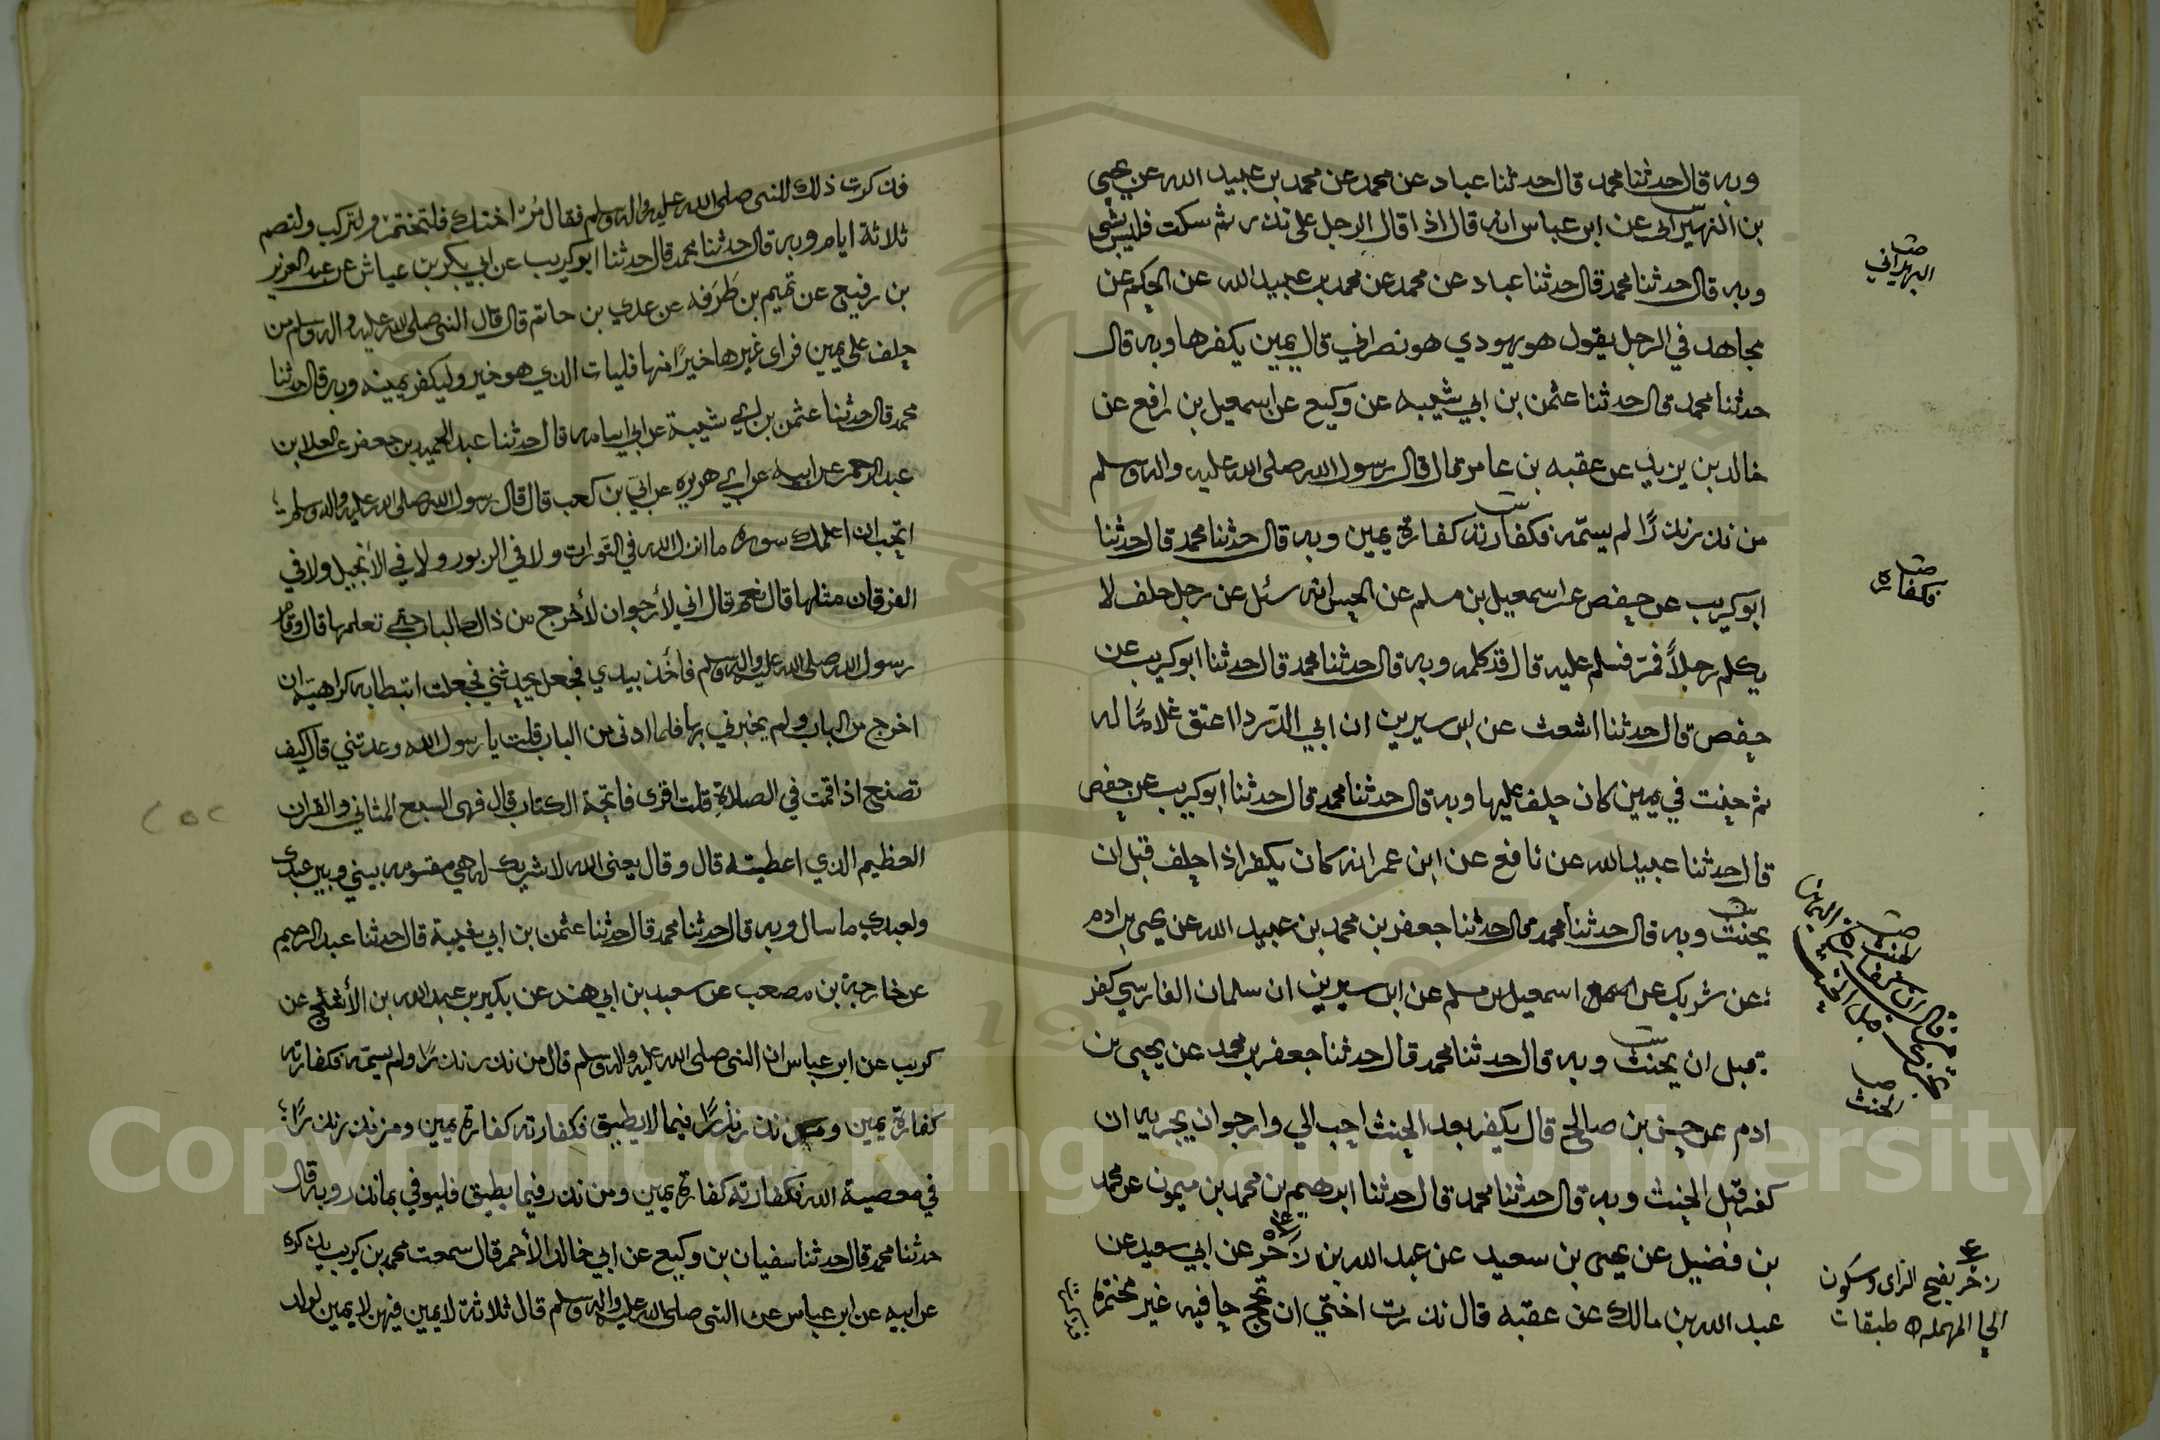 وبه قال حدثنا محمد قال حدثنا عباد عن محمد عن محمد بن عبيد الله عن يحيى
بن النهيراني عن ابن عباس انه قال اذا قال الرجل علي نذر ثم سكت فليس بشي
وبه قال حدثنا محمد قال حدثنا عباد عن محمد عن محمد بن عبيد الله عن الحكم عن
مجاهد في الرجل يقول هو يهودي هو نصراني قال يمين يكفرها وبه قال
حدثنا محمد قال حدثنا عثمن بن ابي شيبه عن وكيع عن اسمعيل بن رافع عن
خالد بن يزيد عن عقبه بن عامر قال قال رسول الله صلى الله عليه واله وسلم
من نذر نذرًا لم يسمّه فكفارته كفارة يمين وبه قال حدثنا محمد قال حدثنا
ابو كريب عن حفص عن اسمعيل بن مسلم عن الحسن انه سئل عن رجل حلف لا
يكلم رجلاً فمرّ فسلم عليه قال قد كلمه وبه قال حدثنا محمد قال حدثنا ابو كريب عن
حفص قال حدثنا اشعث عن ابن سيرين ان ابي الدّرداا عتق غلامًا له
ثم حنث في يمين كان حلف عليها وبه قال حدثنا محمد قال حدثنا ابو كريب عن حفص
قال حدثنا عبيد الله عن نافع عن ابن عمر انه كان يكفر اذا حلف قبل ان
يحنث وبه قال حدثنا محمد قال حدثنا جعفر بن محمد بن عبيد الله عن يحيى بن ادم
عن شريك عن اسمعيل بن مسلم عن ابن سيرين ان سلمان الفارسي كفر
قبل ان يحنث وبه قال حدثنا محمد قال حدثنا جعفر بن محمد عن يحيى بن
ادم عن حسن بن صالح قال يكفر بعد الحنث احب الي وارجوا ان يجزيه ان
كفر قبل الحنث وبه قال حدثنا محمد قال حدثنا ابرهيم بن محمد بن ميمون عن محمد
بن فضيل عن يحيى بن سعيد عن عبد الله بن زَحْر عن ابي سعيد عن
عبد الله بن مالك عن عقبه قال نذرت اختي ان تحج حافيه غير مختمرة
فذكرت
البهراني
فكفارته
الحنث
زحر بفتح الزاى وسكون
الحا المهمله طبقات
فذكرت ذلك للنبي صلى الله عليه واله وسلم فقال مُرْ اختك فلتختمرْ ولتركب ولتصم
ثلاثة ايام وبه قال حدثنا محمد قال حدثنا ابو كريب عن ابي بكر بن عياش عن عبد العزيز
بن رفيع عن تميم بن طَرَفه عن عدي بن حاتم قال قال النبي صلى الله عليه واله وسلم من
حلف على يمين فراى غيرها خيرًا منها فليات الذي هو خير وليكفر يمينه وبه قال حدثنا
محمد قال حدثنا عثمن بن ابي شيبة عن ابي اسامه قال حدثنا عبد الحميد بن جعفر عن العلا بن
عبد الرحمن عن ابيه عن ابي هريره عن ابي بن كعب قال قال رسول الله صلى الله عليه واله وسلم
اتحب ان اعلمك سوره ما انزل الله في التورات ولا في الزبور ولا في الانجيل ولا في
الفرقان مثلها قال نعم قال اني لأرجوا ان لا تخرج من ذلك الباب حتى تعلمها قال وقام
رسول الله صلى الله عليه واله وسلم فاخذ بيدي فجعل يحدثني فجعلت ابتطا به كراهية ان
اخرج من الباب ولم يخبرني بها فلما ادنى من الباب قلت يا رسول الله وعدتني قال كيف
تصنع اذا قمت في الصلاة قلت اقرى فاتحة الكتاب قال فهي السبع المثاني والقران
العظيم الذي اعطيته قال وقال يعني الله لا شريك له هي مقسومه بيني وبين عبدي
ولعبدي ما سال وبه قال حدثنا محمد قال حدثنا عثمن بن ابي شيبة قال حدثنا عبد الرحيم
عن خارجة بن مصعب عن سعيد بن ابي هند عن بكير بن عبد الله بن الأشج عن
كريب عن ابن عباس ان النبي صلى الله عليه واله وسلم قال من نذر نذرًا ولم يسمّه فكفارته
كفارة يمين ومن نذر نذرًا فيما لا يطيق فكفارته كفارة يمين ومن نذر نذرًا
في معصية الله فكفارته كفارة يمين ومن نذر فيما يطيق فليوفي بما نذر وبه قال
حدثنا محمد قال حدثنا سفيان بن وكيع عن ابي خالد الأحمر قال سمعت محمد بن كريب يذكره
عن ابيه عن ابن عباس عن النبي صلى الله عليه واله وسلم قال ثلاثة لا يمين فيهن لا يمين لولد
Copyright © King Saud University
1957